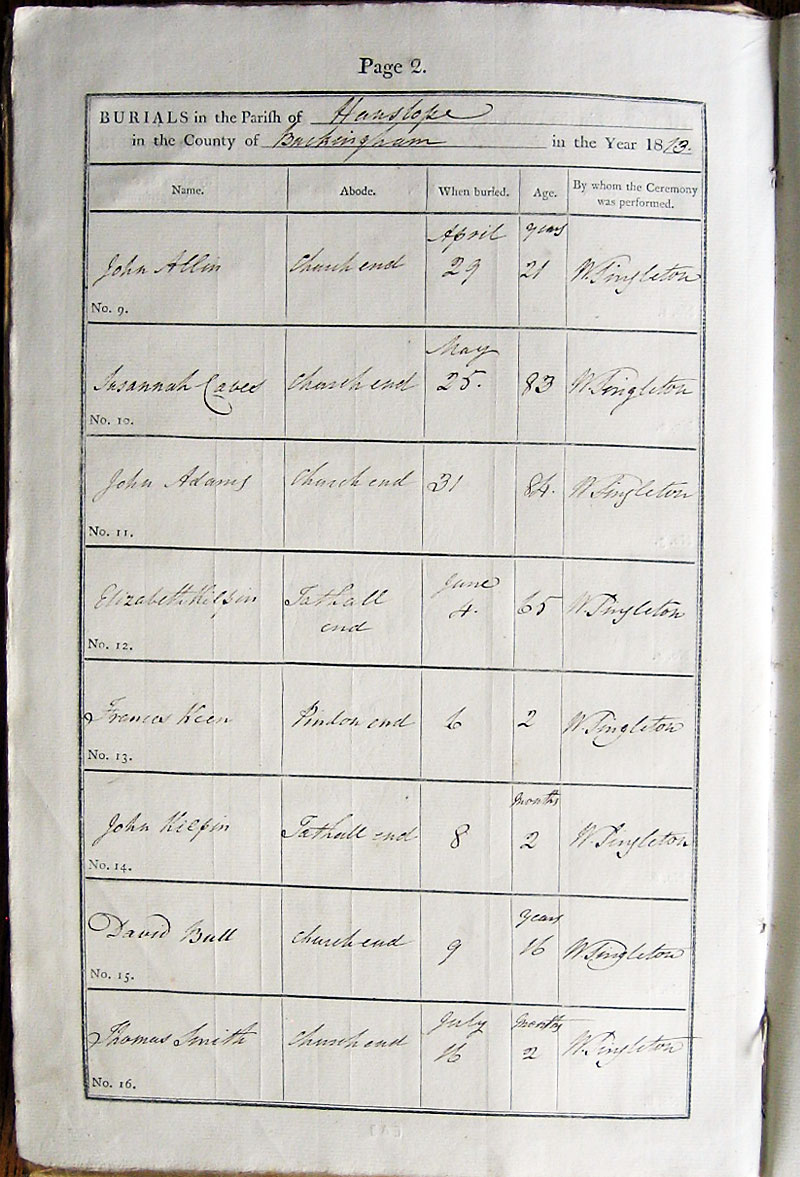 Page 2.
BURIALS in the Parish of Hanslope
in the County of Buckingham in the Year 1813.
Name. Abode. When buried. Age. By whom the Ceremony
was performed.
April years
John Allin Church end 29 21 W. Singleton
No. 9.
May
Susannah Caves Church end 25. 83 W Singleton
No. 10.
John Adams Church end 31 84. W Singleton
No. 11.
June
Elizabeth Kilpin Tathall 4. 65 W Singleton
end
No. 12.
Frances Keen Pindon end 6 2 W Singleton
No. 13.
months
John Kilpin Tathall end 8 2 W. Singleton
No. 14.
years
David Bull Church end 9 16 W Singleton
No. 15.
July months
Thomas Smith Church end 16 2 W. Singleton
No. 16.